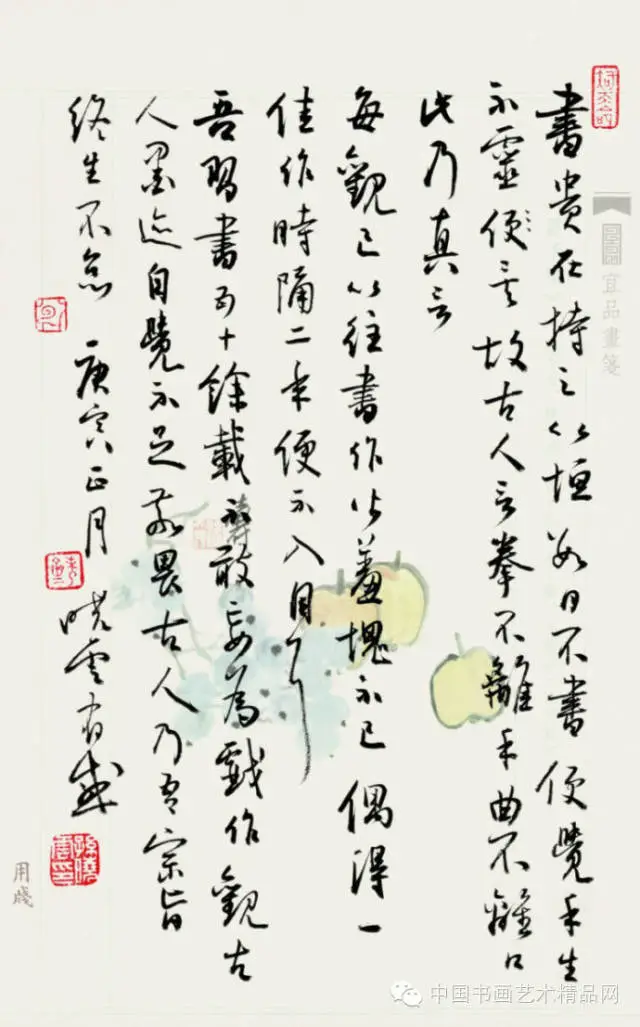 書貴在持之以恒數日不書便覺手生
不靈便之言故古人言拳不離手曲不離口
此乃真言
每觀已以往書作皆羞愧不已偶得一
佳作時隔二年便不入目了
吾習書五十餘載不敢妄為戲作觀古
人墨迹自覺不足敬畏古人乃吾宗旨
終生不怠 庚寅正月 曉雲有感
宜品畫箋
用牋
中国书画艺术精品网